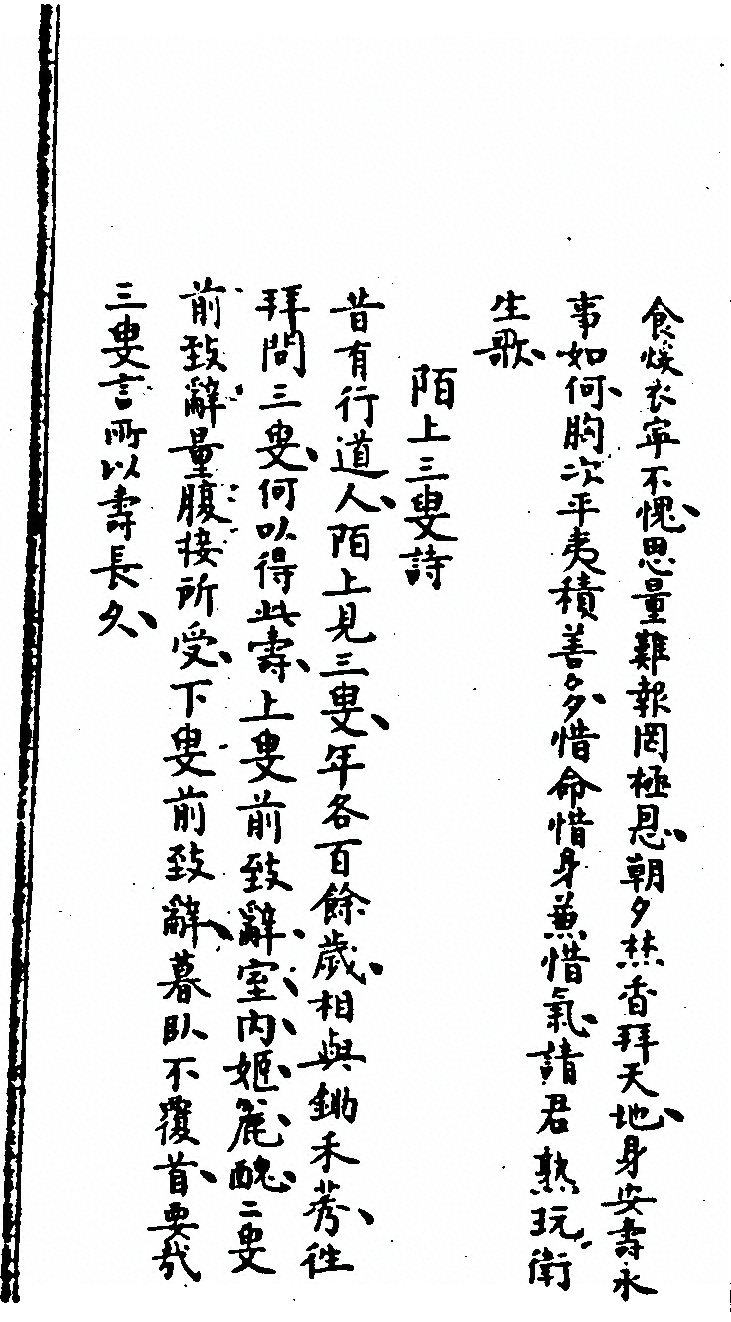 食煖衣寧不愧、思量難報罔極恩、朝夕焚香拜天地、身安壽永
事如何、胸次平夷積善多、惜命惜身兼惜氣、請君熟玩衛
生歌、
陌上三叟詩
昔有行道人、陌上見三叟、年各百餘歲、相與鋤禾莠、往
拜問三叟、何以得此壽、上叟前致辭、室內姬麄醜、二叟
前致辭、量腹接所受、下叟前致辭、暮臥不覆首、要哉
三叟言所以壽長久、